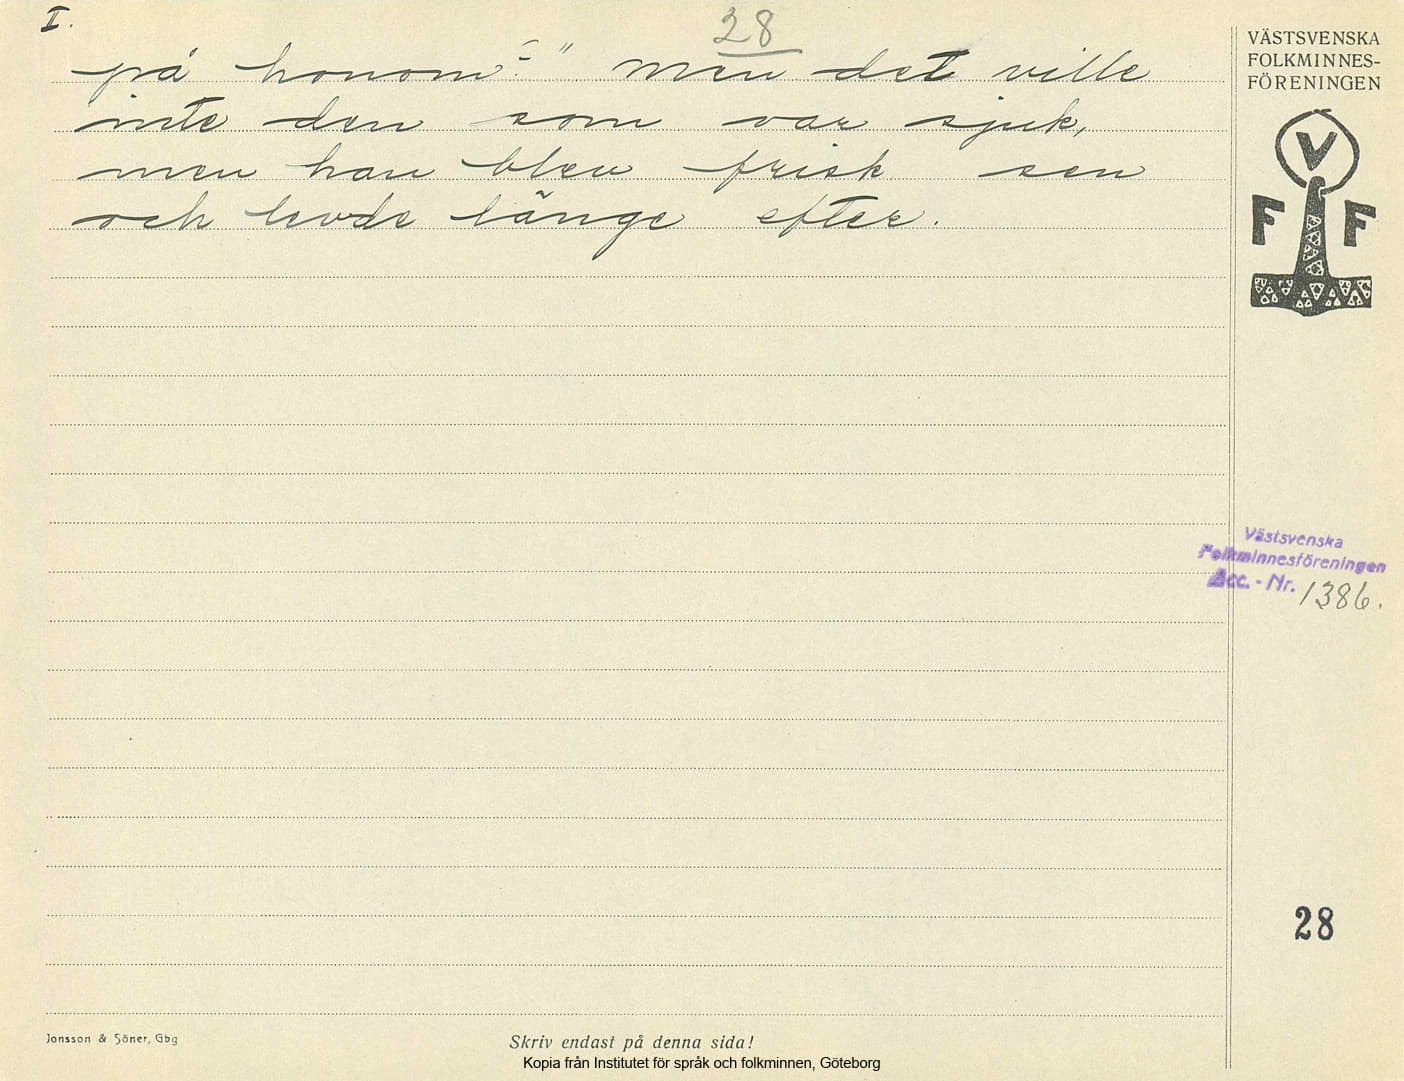 I.
28
på honom?" Men det ville
inte den som var sjuk,
men han blev frisk sen
och levde länge efter.
VÄSTSVENSKA
FOLKMINNES-
FÖRENINGEN
V
F F
Västsvenska
Folkminnesföreningen
Acc. - Nr. 1386.
28
Jonsson & Söner, Gbg
Skriv endast på denna sida!
Kopia från Institutet för språk och folkminnen, Göteborg